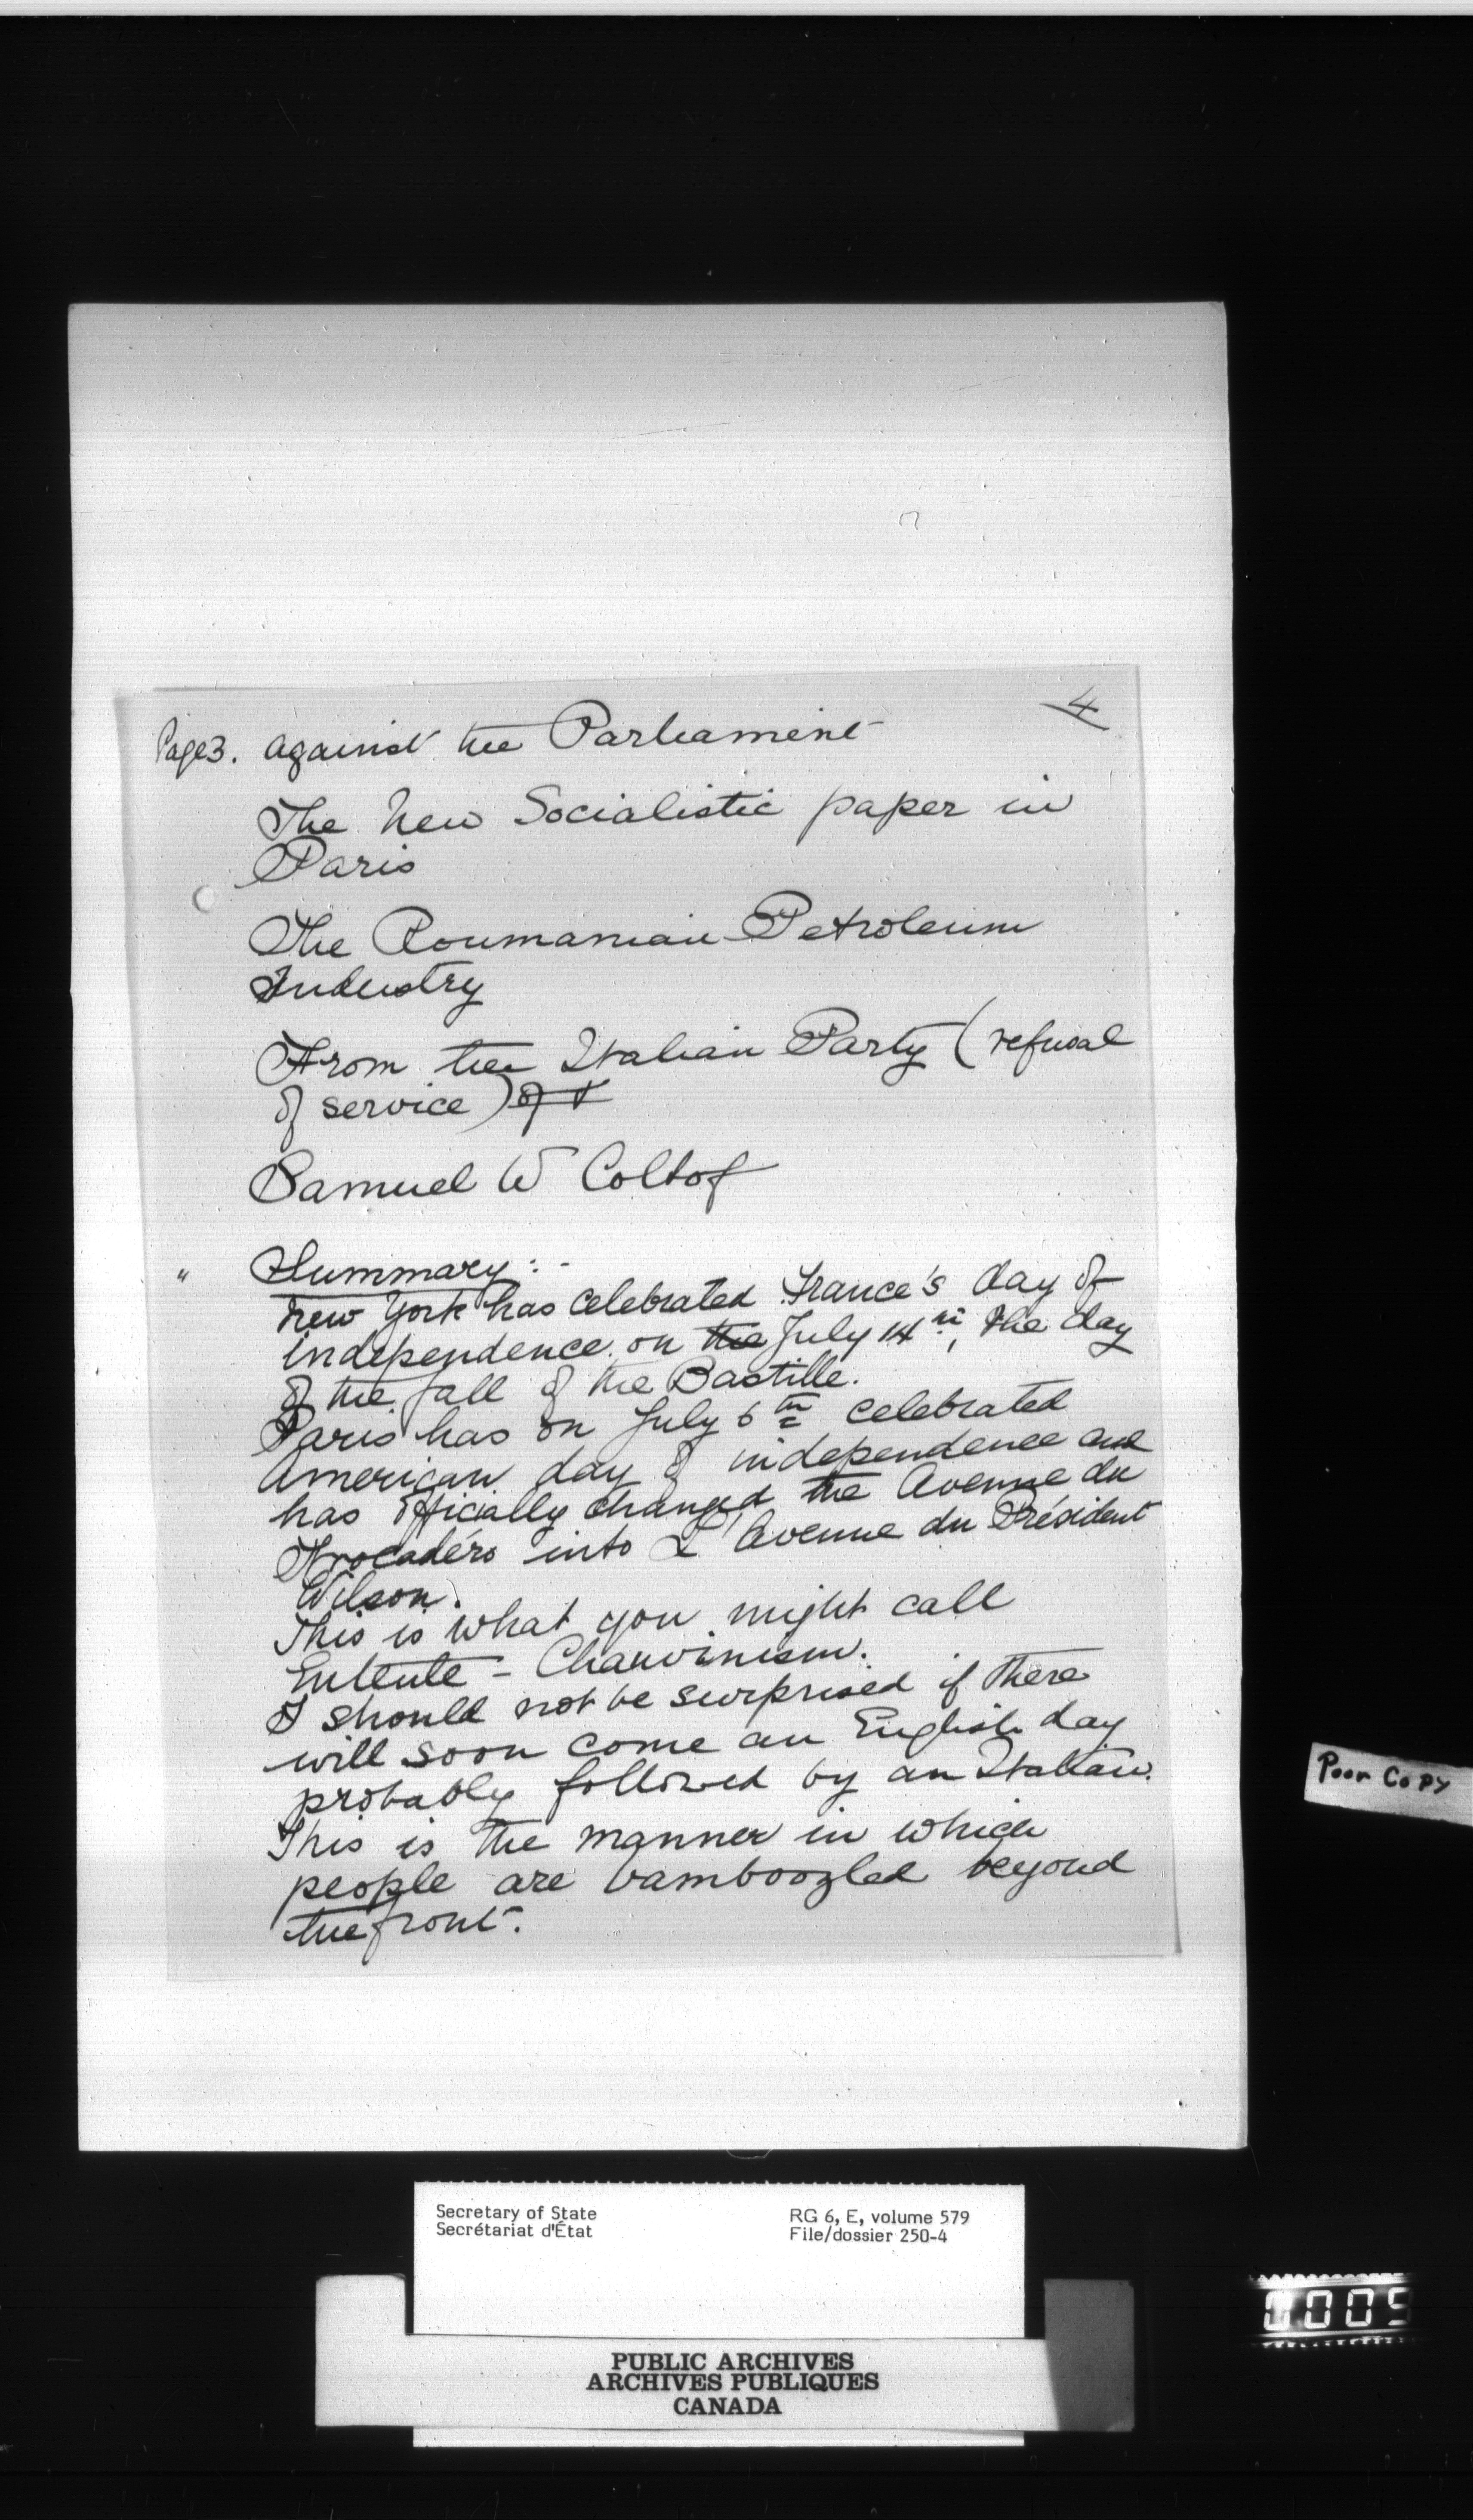 4
Page 3. against the Parliament
The New Socialistic paper in
Paris
The Roumanian Petroleum
Industry
From the Italian Party (refusal
of service) of
Samuel W Coltof
" Summary: -
New York has celebrated France's day of
independence on the July 14th, the day
of the fall of the Bastille.
Paris has on July 6th celebrated
American day of independence and
has officially changed the Avenue du
Trocadéro into L'Avenue du Président
Wilson.
This is what you might call
Entente - Chauvinism.
I should not be surprised if there
will soon come an English day
probably followed by an Italian.
This is the manner in which
people are bamboozled beyond
the front.
Poor Copy
Secretary of State
Secrétariat d'État
RG 6, E, volume 579
File/dossier 250-4
0005
PUBLIC ARCHIVES
ARCHIVES PUBLIQUES
CANADA